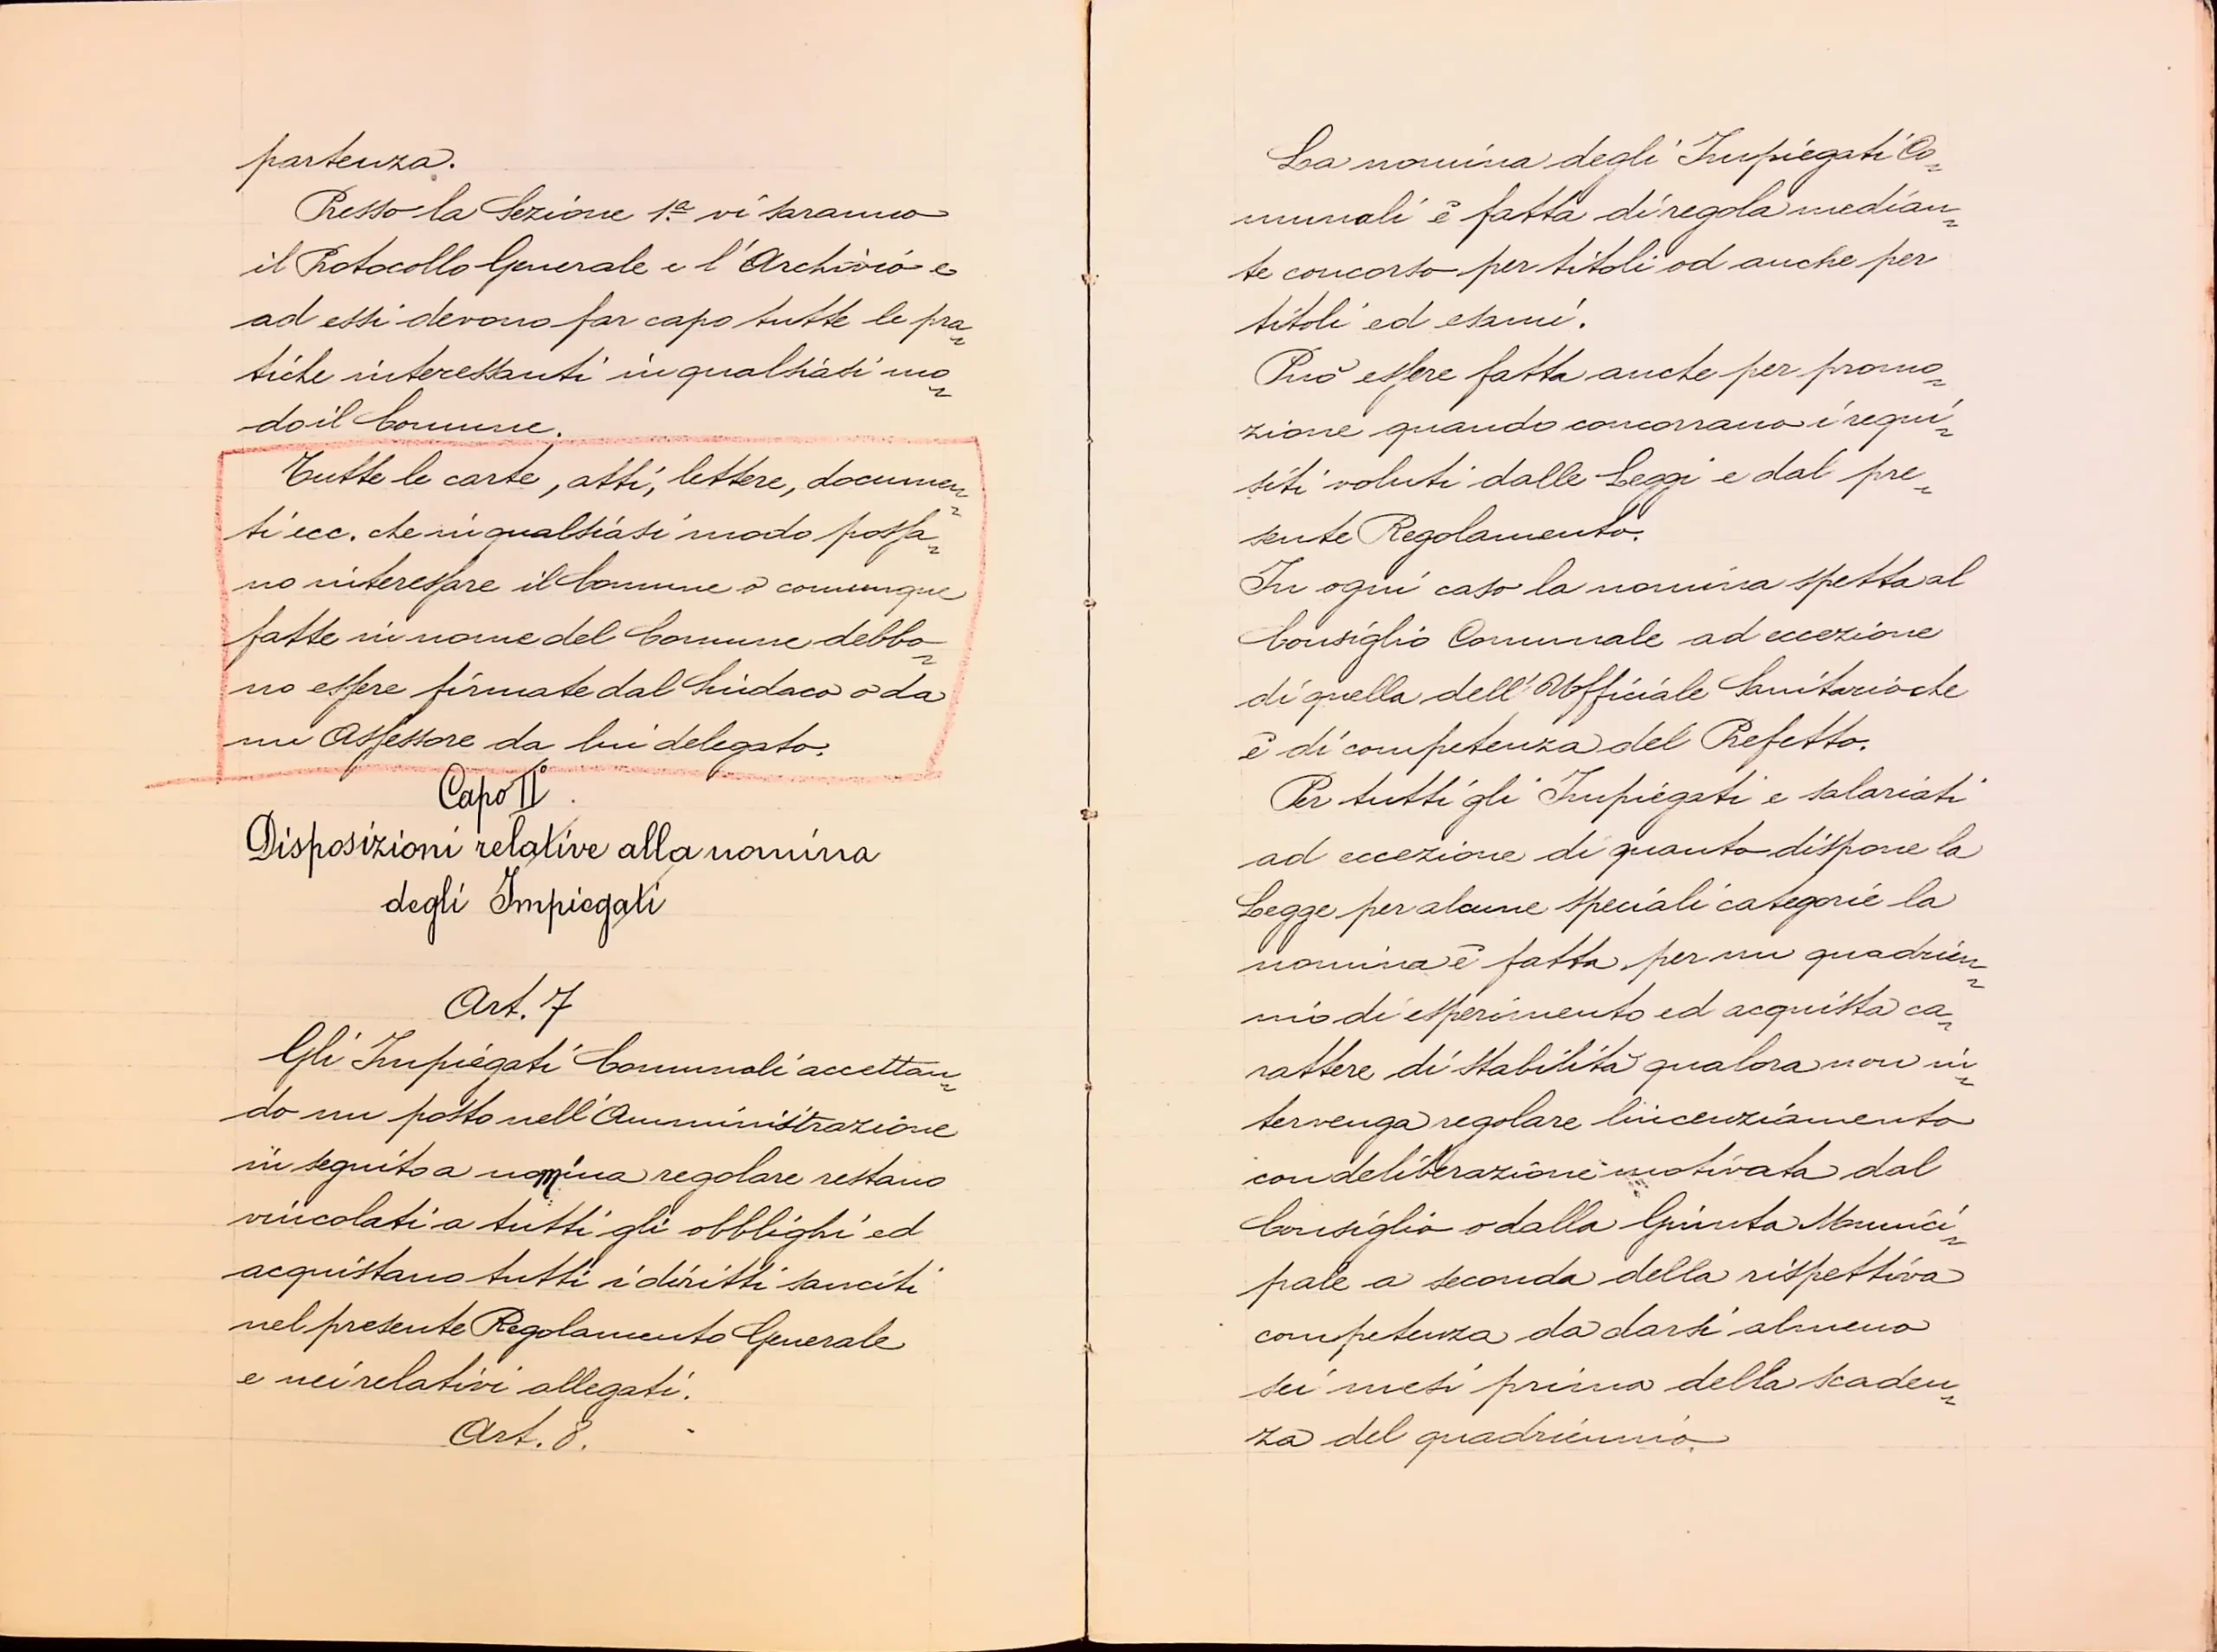 partenza.
Presso la Sezione 1.ª vi saranno
il Protocollo Generale e l'Archivio e
ad essi devono far capo tutte le pra=
tiche interessanti in qualsiasi mo=
do il Comune.
Tutte le carte, atti, lettere, documen=
ti ecc. che in qualsiasi modo possa=
no interessare il Comune o comunque
fatte in nome del Comune debbo=
no essere firmate dal Sindaco o da
un Assessore da lui delegato.
Capo II°
Disposizioni relative alla nomina
degli Impiegati
Art. 7
Gli Impiegati Comunali accettan=
do un posto nell'Amministrazione
in seguito a nomina regolare restano
vincolati a tutti gli obblighi ed
acquistano tutti i diritti sanciti
nel presente Regolamento Generale
e nei relativi allegati.
Art. 8.
La nomina degli Impiegati Co=
munali è fatta di regola median=
te concorso per titoli od anche per
titoli ed esami.
Può essere fatta anche per promo=
zione quando concorrano i requi=
siti voluti dalle Leggi e dal pre=
sente Regolamento.
In ogni caso la nomina spetta al
Consiglio Comunale ad eccezione
di quella dell'Ufficiale Sanitario che
è di competenza del Prefetto.
Per tutti gli Impiegati e salariati
ad eccezione di quanto dispone la
Legge per alcune speciali categorie la
nomina è fatta per un quadrien=
nio di esperimento ed acquista ca=
rattere di stabilità qualora non in=
tervenga regolare lincenziamento
con deliberazione motivata dal
Consiglio o dalla Giunta Munici=
pale a seconda della rispettiva
competenza da darsi almeno
sei mesi prima della scaden=
za del quadriennio.